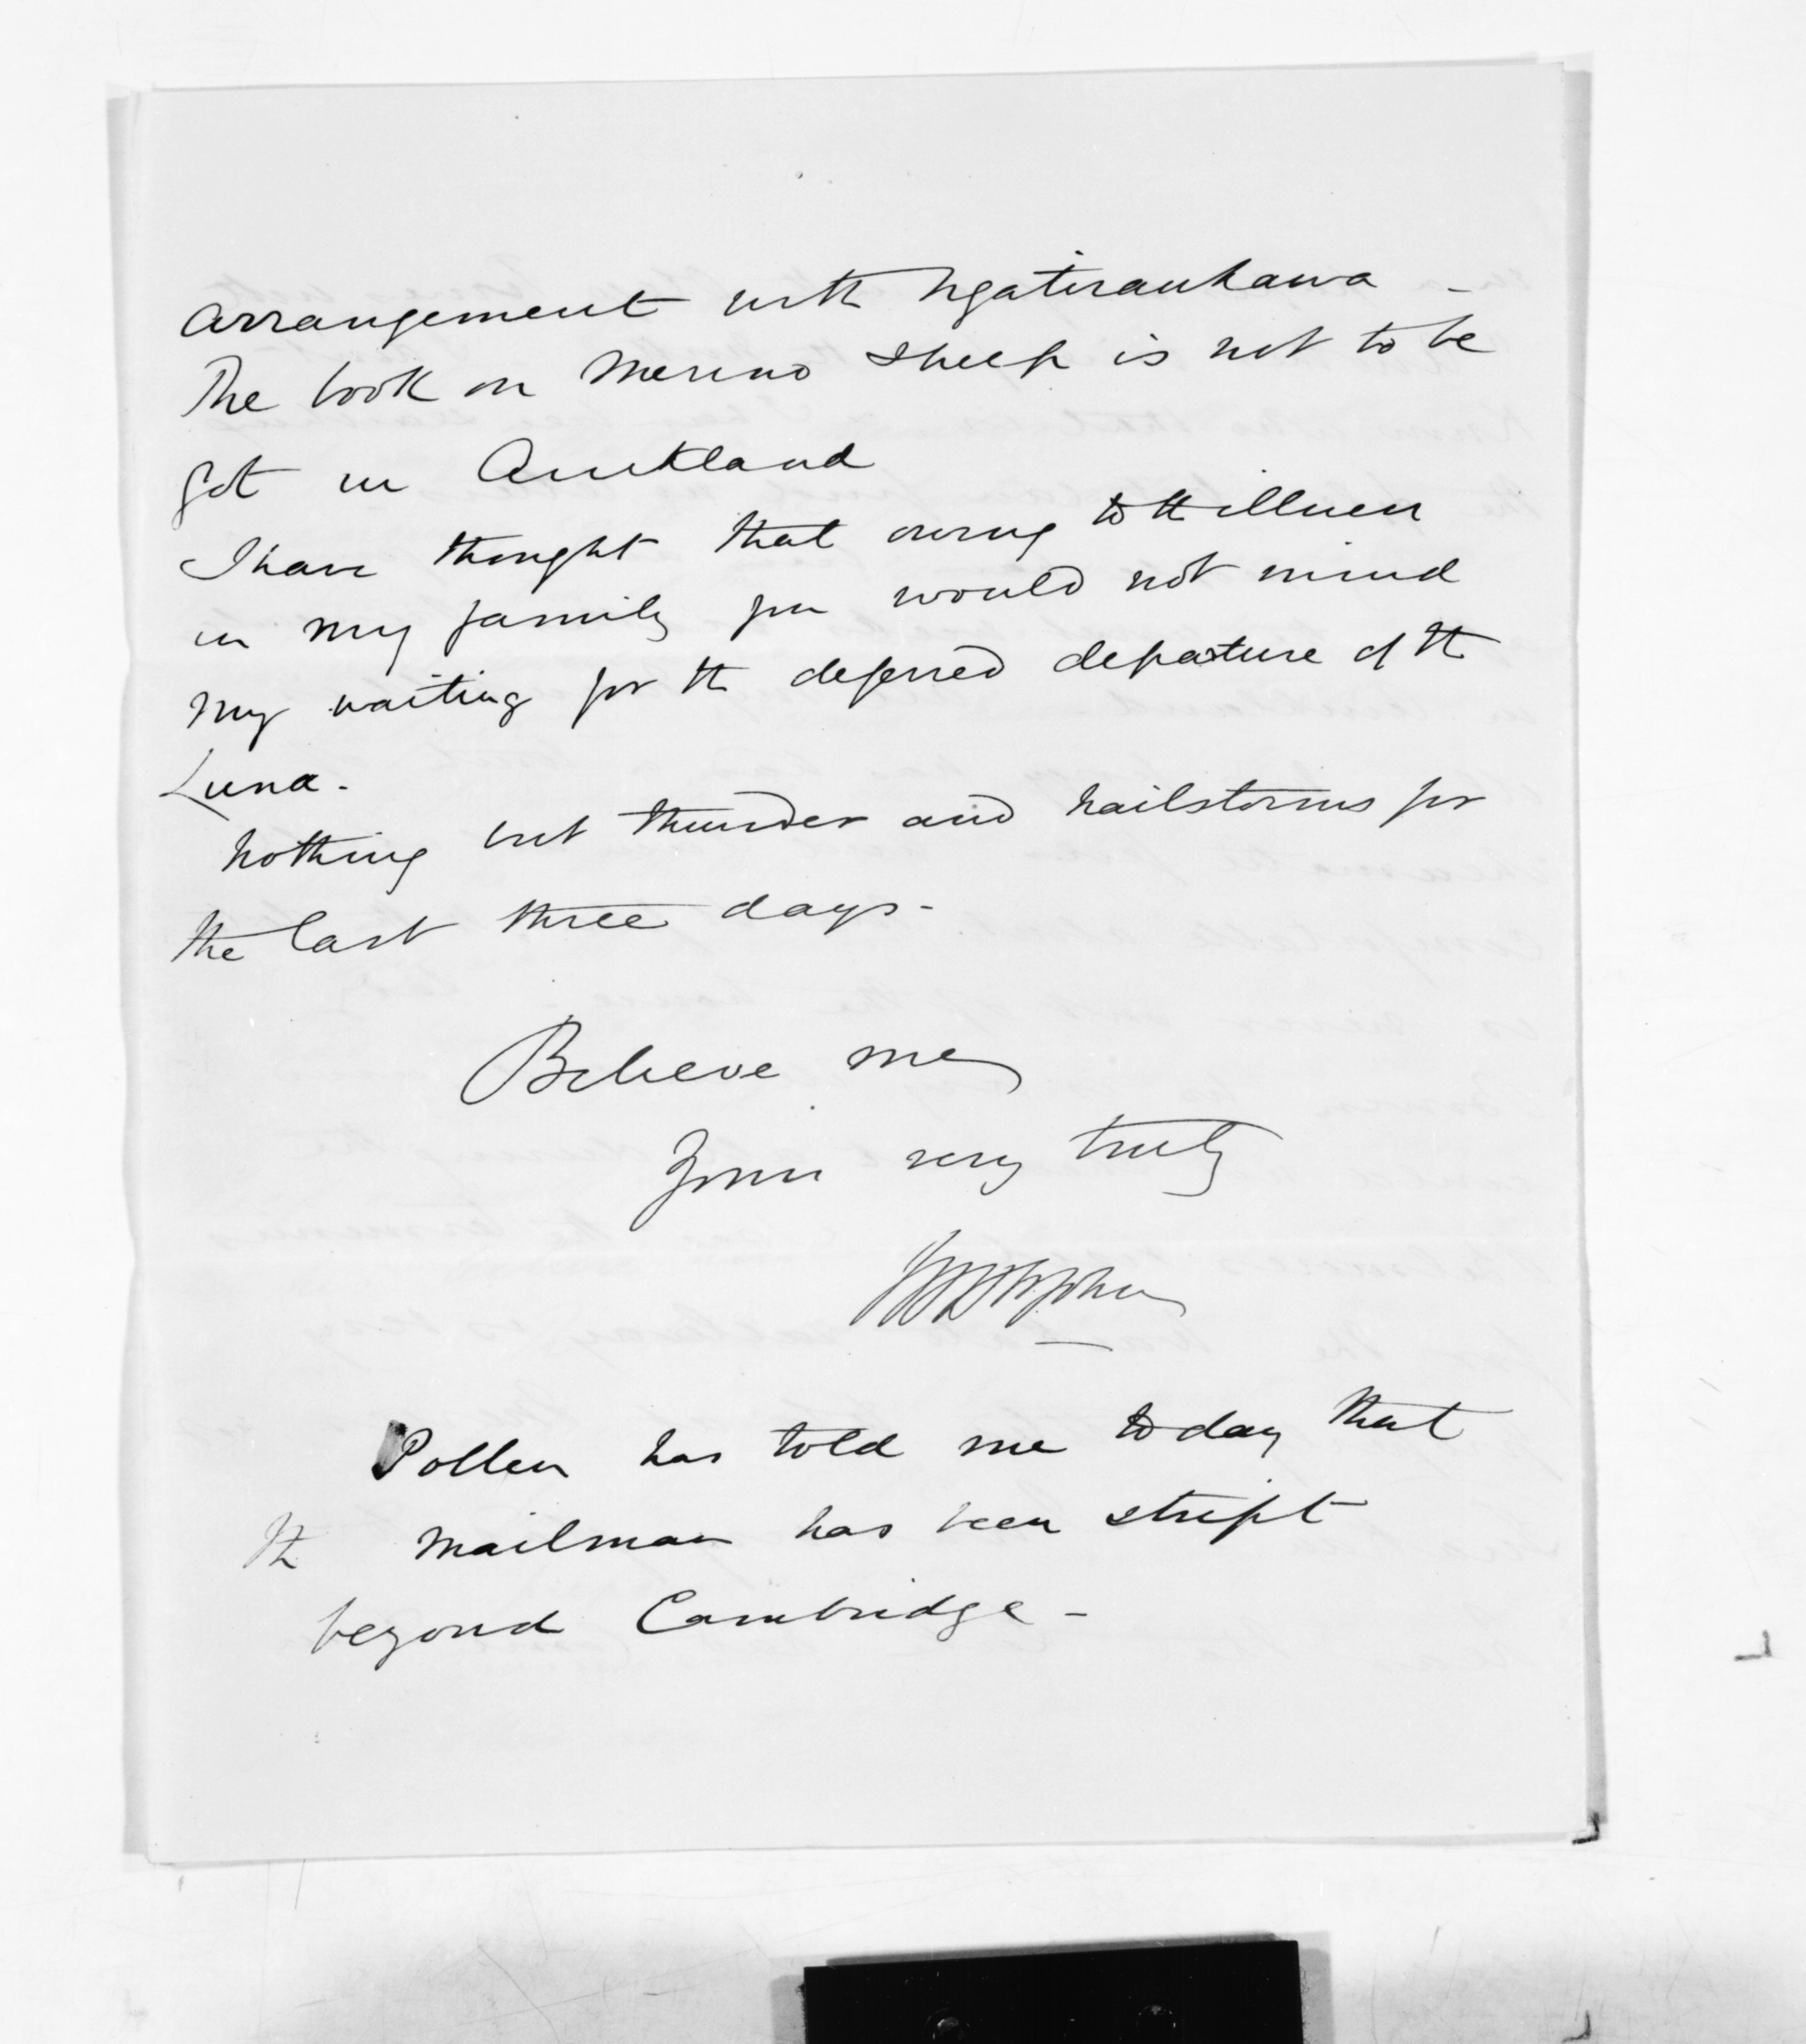 arrangement with Ngatiraukawa -
The book on Merino sheep is not to be
got in Auckland
I have thought that owing to the illness
in my family you would not mind
my waiting for the deferred departure of the
Luna.
Nothing but thunder and hailstorms for
the last three days -
Believe me
Yours very truly
Pollen has told me today that
the mailman has been stript
beyond Cambridge -